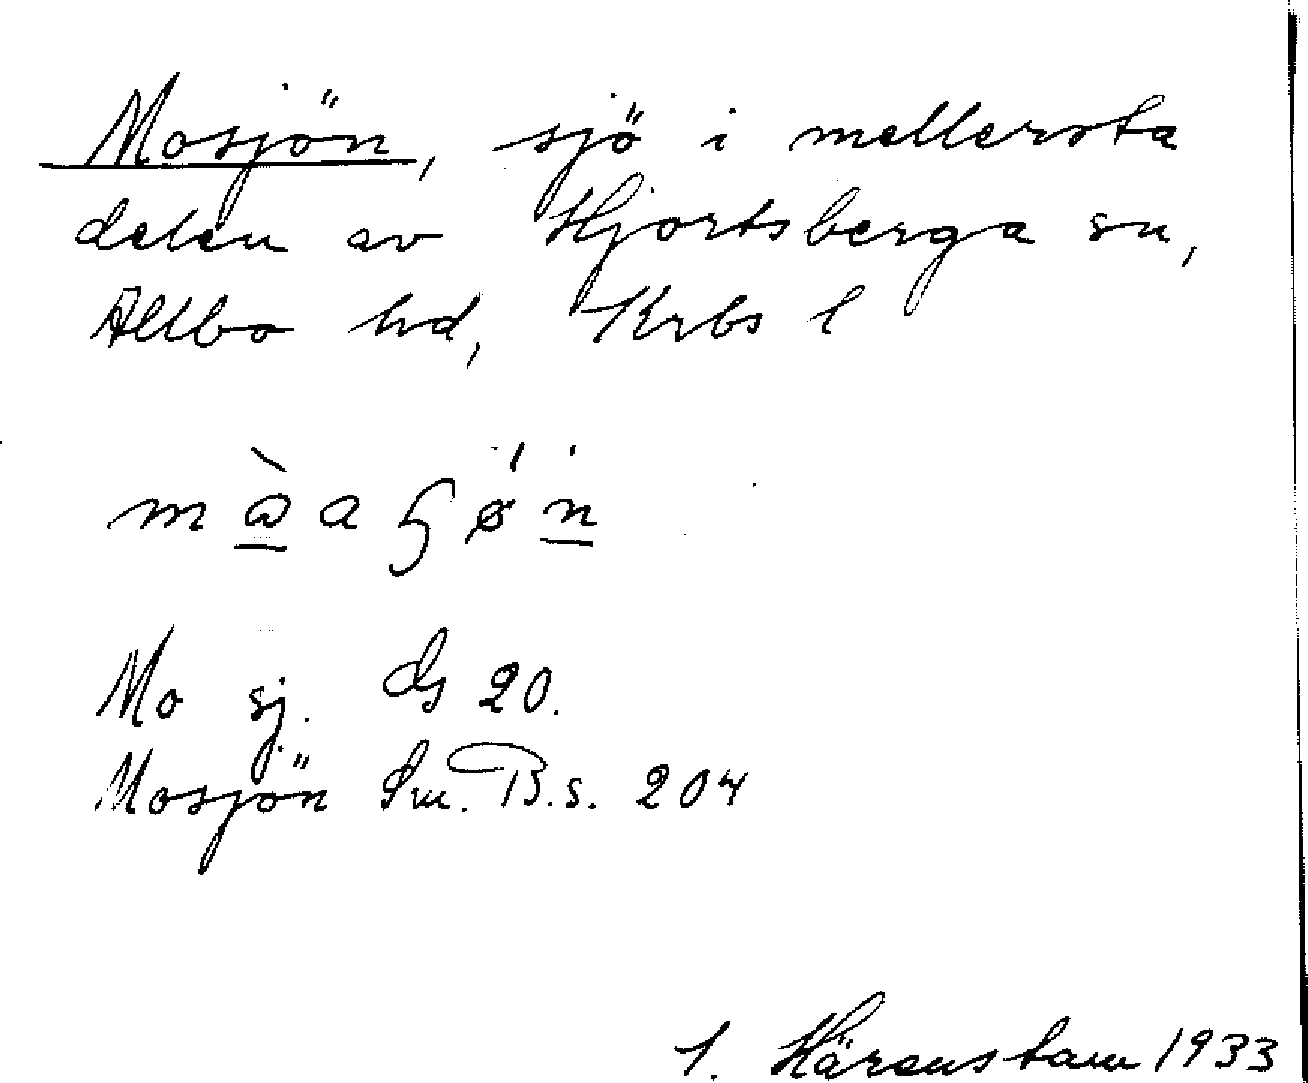 Mosjön, sjö i mellersta
delen av Hjortsberga sn,
Allbo hd, Krbs l
Mo sj. Gs 20.
Mosjön Sm. B.s. 204
S. Härenstam 1933